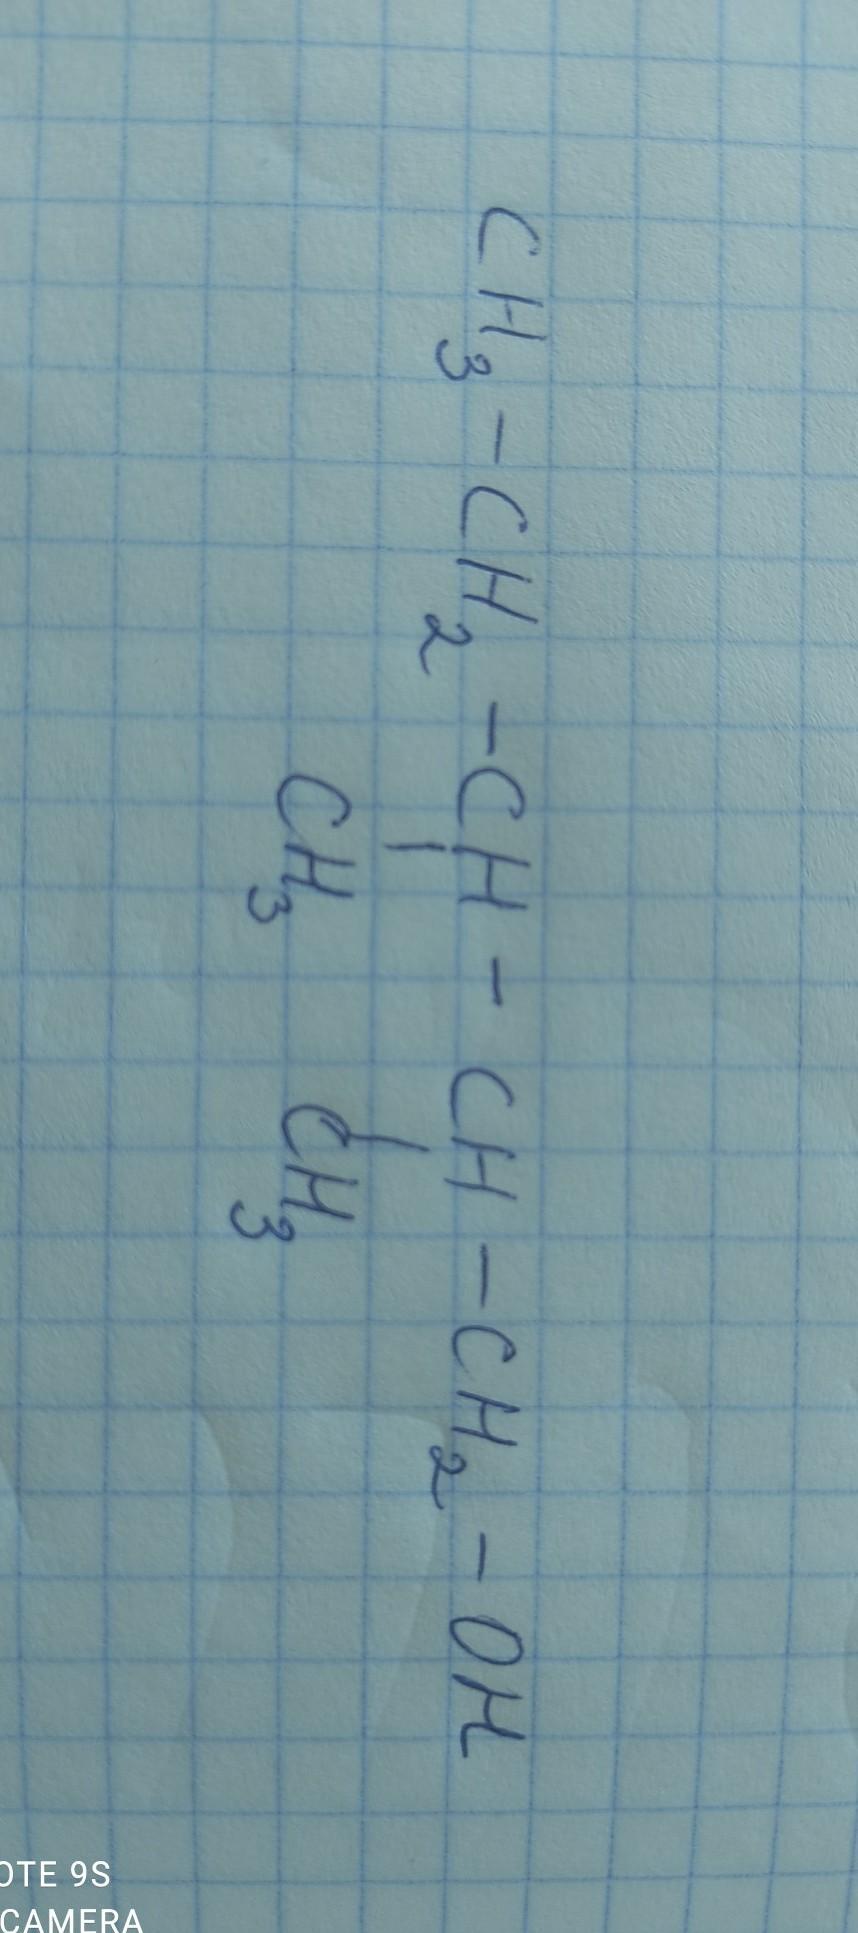 CH3-CH2-CH-CH-CH2-OH
CH3 CH3
OTE 9S
CAMERA